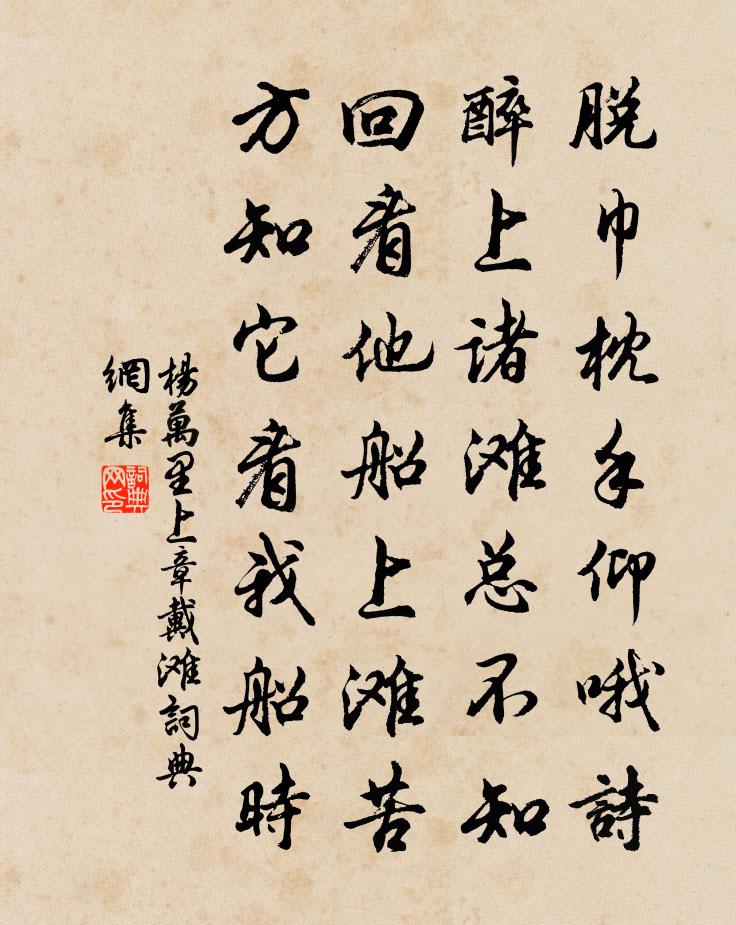 脱巾枕手仰哦詩
醉上诸滩总不知
回看他船上滩苦
方知它看我船時
楊萬里上章戴滩詞典
網集
詞典
网印